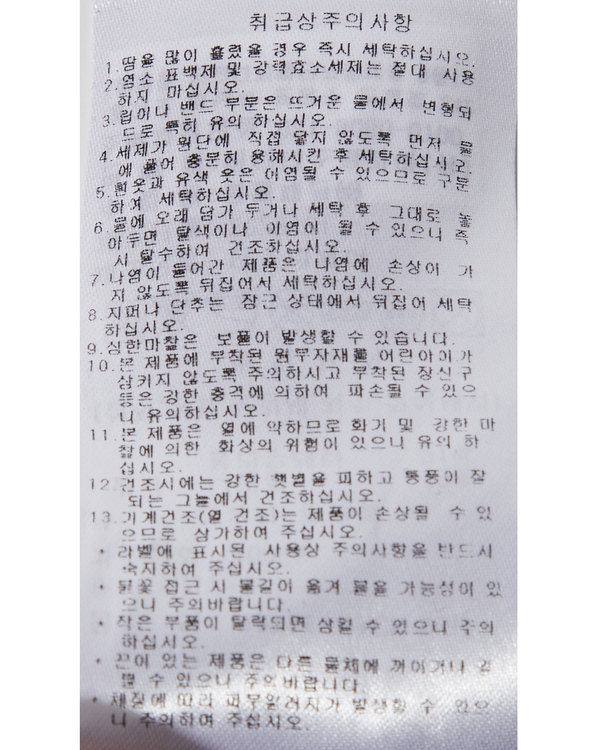 취급상주의사항
1.땀을 많이 흘렸을 경우 즉시 세탁하십시오.
2.염소 표백제 및 강력효소세제는 절대 사용
하지 마십시오.
3.립이나 밴드 부분은 뜨거운 물에서 변형되
므로 특히 유의 하십시오.
4.세제가 원단에 직접 닿지 않도록 먼저 물
에 풀어 충분히 용해시킨 후 세탁하십시오.
5.흰옷과 유색 옷은 이염될 수 있으므로 구분
하여 세탁하십시오.
6.물에 오래 담가 두거나 세탁 후 그대로 놓
아두면 탈색이나 이염이 될 수 있으니 즉
시 탈수하여 건조하십시오.
7.나염이 들어간 제품은 나염에 손상이 가
지 않도록 뒤집어서 세탁하십시오.
8.지퍼나 단추는 잠근 상태에서 뒤집어 세탁
하십시오.
9.심한마찰은 보풀이 발생할 수 있습니다.
10.본 제품에 부착된 원부자재를 어린아이가
삼키지 않도록 주의하시고 부착된 장신구
등은 강한 충격에 의하여 파손될 수 있으
니 유의하십시오.
11.본 제품은 열에 약하므로 화기 및 강한 마
찰에 의한 화상의 위험이 있으니 유의 하
십시오.
12.건조시에는 강한 햇볕을 피하고 통풍이 잘
되는 그늘에서 건조하십시오.
13.기계건조(열 건조)는 제품이 손상될 수 있
으므로 삼가하여 주십시오.
• 라벨에 표시된 사용상 주의사항을 반드시
숙지하여 주십시오.
• 불꽃 접근 시 불길이 옮겨 붙을 가능성이 있
으니 주의바랍니다.
• 작은 부품이 탈락되면 삼킬 수 있으니 주의
하십시오.
• 끈이 있는 제품은 다른 물체에 끼이거나 걸
릴 수 있으니 주의바랍니다.
• 체질에 따라 피부알러지가 발생할 수 있으
니 주의하여 주십시오.